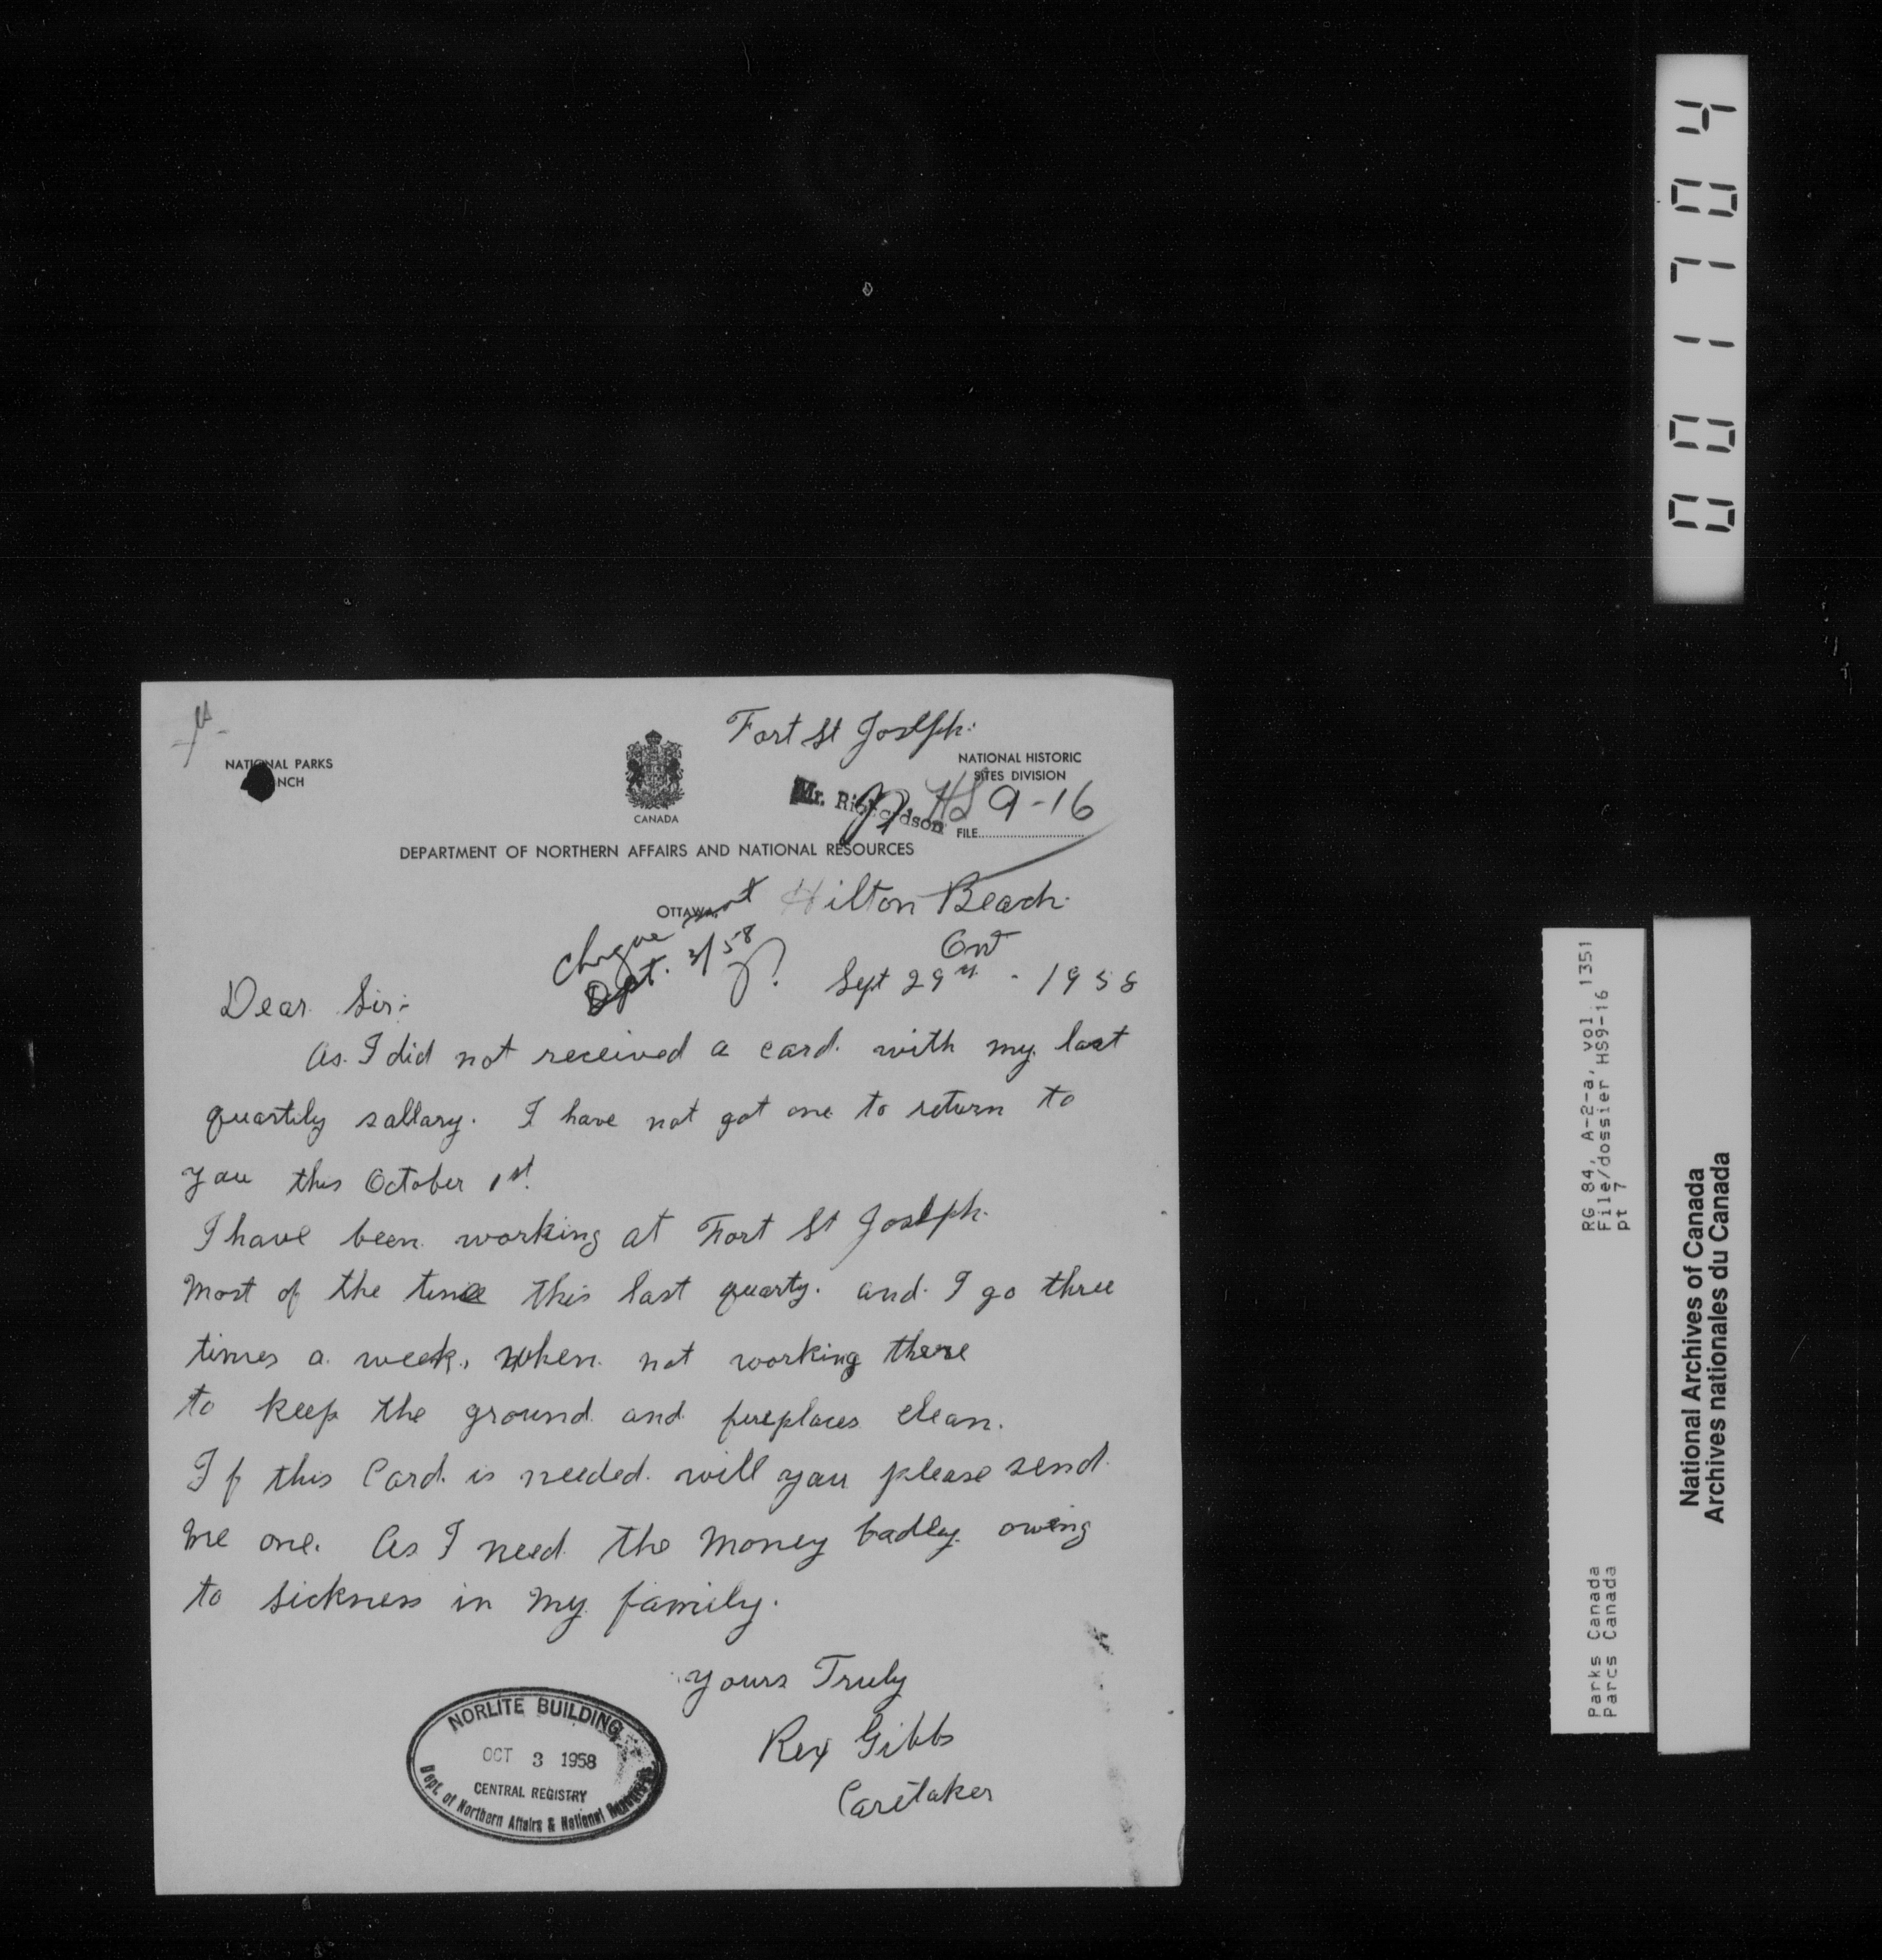 Fort St Joseph:
NATIONAL PARKS
NCH
CANADA
NATIONAL HISTORIC
SITES DIVISION
Mr. Richardson
HS 9-16
FILE
DEPARTMENT OF NORTHERN AFFAIRS AND NATIONAL RESOURCES
OTTAWA,
Hilton Beach.
Ont
Cheque sent
58
Sept 29th - 1958
Dear Sir:-
As I did not received a card. with my last
quartily sallary. I have not got one to return to
you this October 1st.
I have been working at Fort St Joseph.
Most of the time this last quarty. and I go three
times a week, when not working there
to keep the ground and fireplaces clean.
If this Card. is needed. will you please send
me one. As I need the money badley owing
to sickness in my family.
Yours Truly
Rex Gibbs
Caretaker
NORLITE BUILDING
OCT 3 1958
CENTRAL REGISTRY
Dept. of Northern Affairs & National Resources
001704
RG 84, A-2-a, vol. 1351
File/dossier HS9-16
pt 7
Parks Canada
Parcs Canada
National Archives of Canada
Archives nationales du Canada